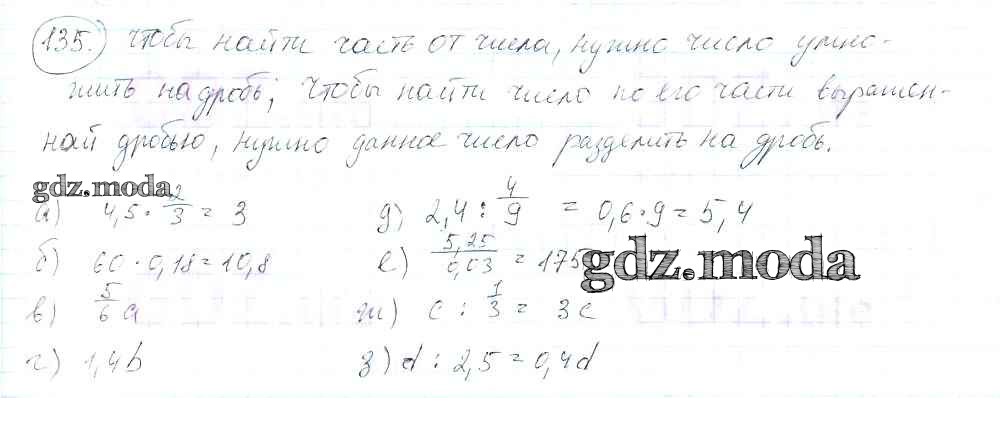 135. Чтобы найти часть от числа, нужно число умно-
жить на дробь; Чтобы найти число по его части выражен-
ной дробью, нужно данное число разделить на дробь.
gdz.moda
а) 4,5 · 2/3 = 3
д) 2,4 : 4/9 = 0,6 · 9 = 5,4
б) 60 · 0,18 = 10,8
е) 5,25/0,03 = 175
gdz.moda
в) 5/6 a
ж) c : 1/3 = 3c
г) 1,4b
з) d : 2,5 = 0,4d